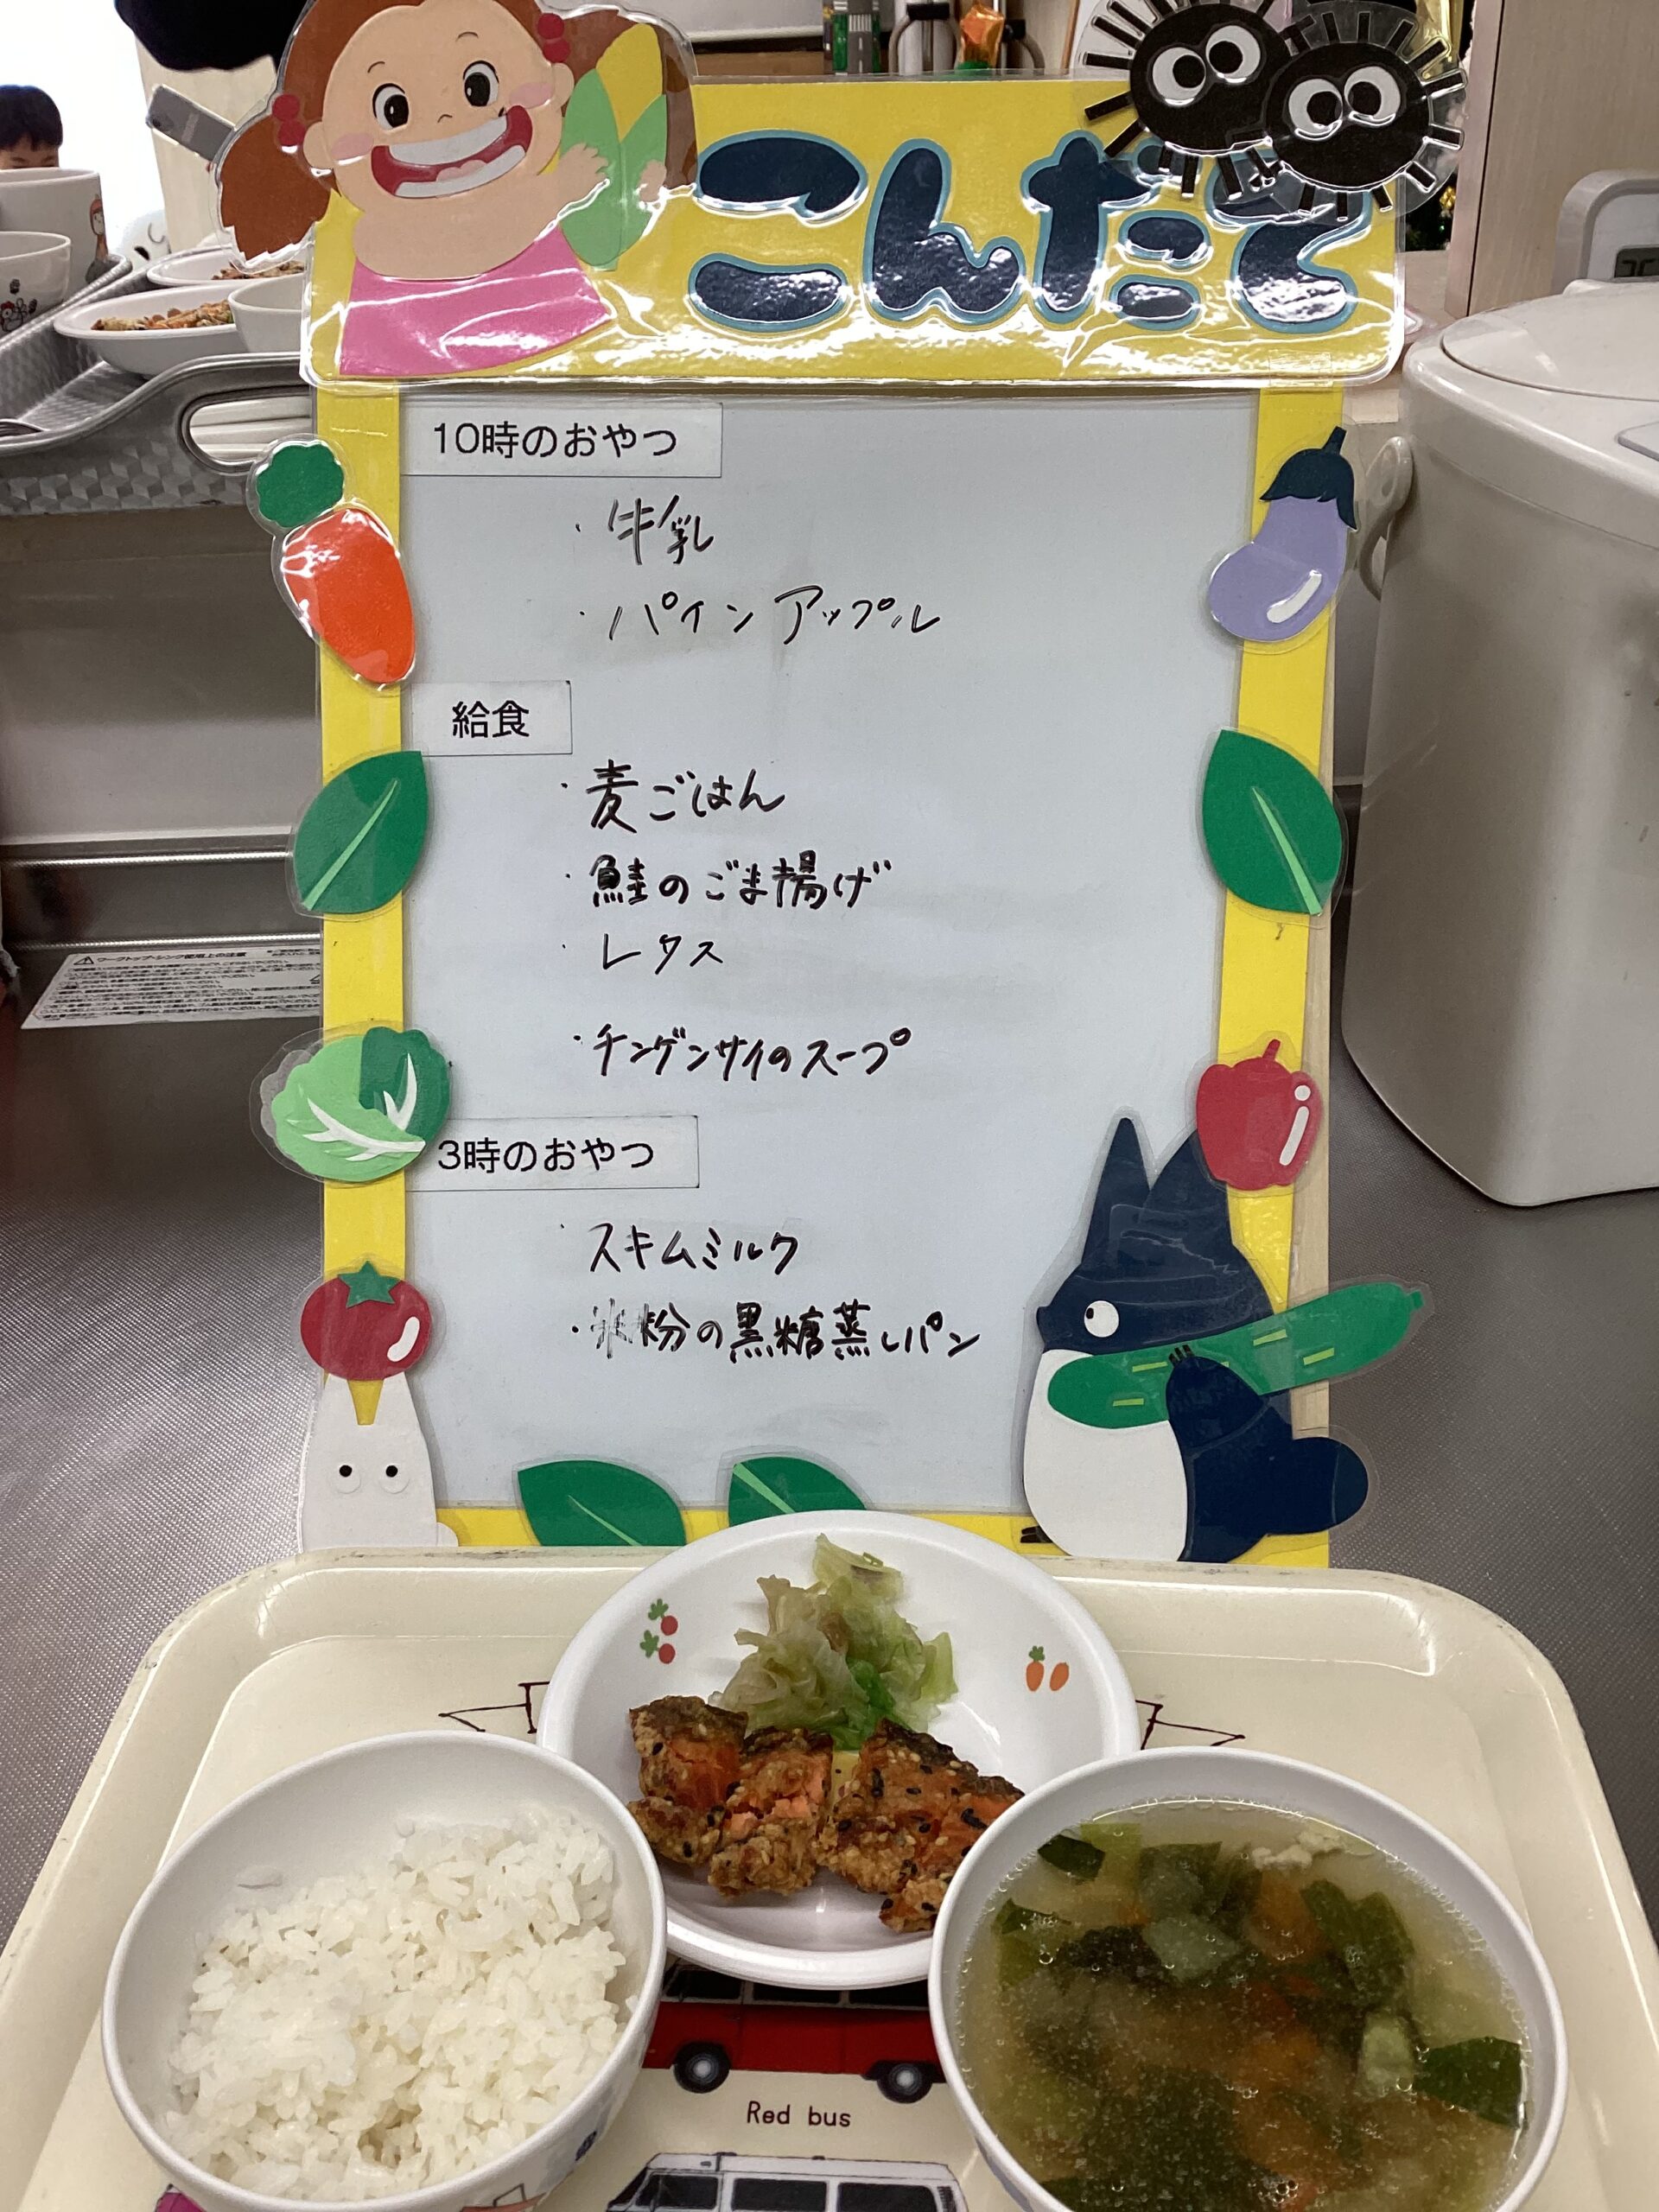 こんだて
10時のおやつ
・牛乳
・パインアップル
給食
・麦ごはん
・鮭のごま揚げ
・レタス
・チンゲンサイのスープ
3時のおやつ
・スキムミルク
・米粉の黒糖蒸しパン
ワークトップ・シンク使用上の注意
Red bus